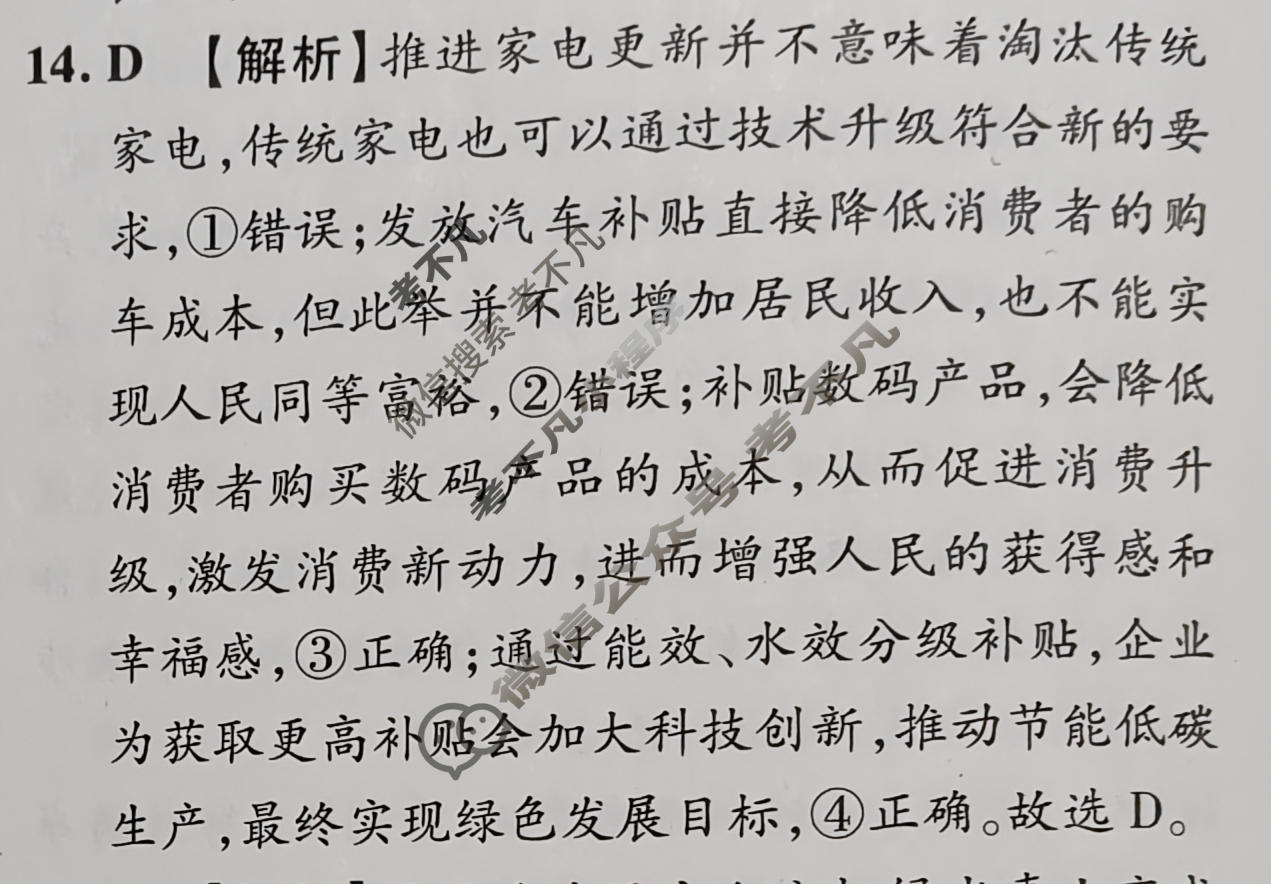 14. D 【解析】推进家电更新并不意味着淘汰传统
家电,传统家电也可以通过技术升级符合新的要
求,①错误;发放汽车补贴直接降低消费者的购
车成本,但此举并不能增加居民收入,也不能实
现人民同等富裕,②错误;补贴数码产品,会降低
消费者购买数码产品的成本,从而促进消费升
级,激发消费新动力,进而增强人民的获得感和
幸福感,③正确;通过能效、水效分级补贴,企业
为获取更高补贴会加大科技创新,推动节能低碳
生产,最终实现绿色发展目标,④正确。故选 D。
考不凡
微信搜索 考不凡
考不凡小程序
微信公众号 考不凡